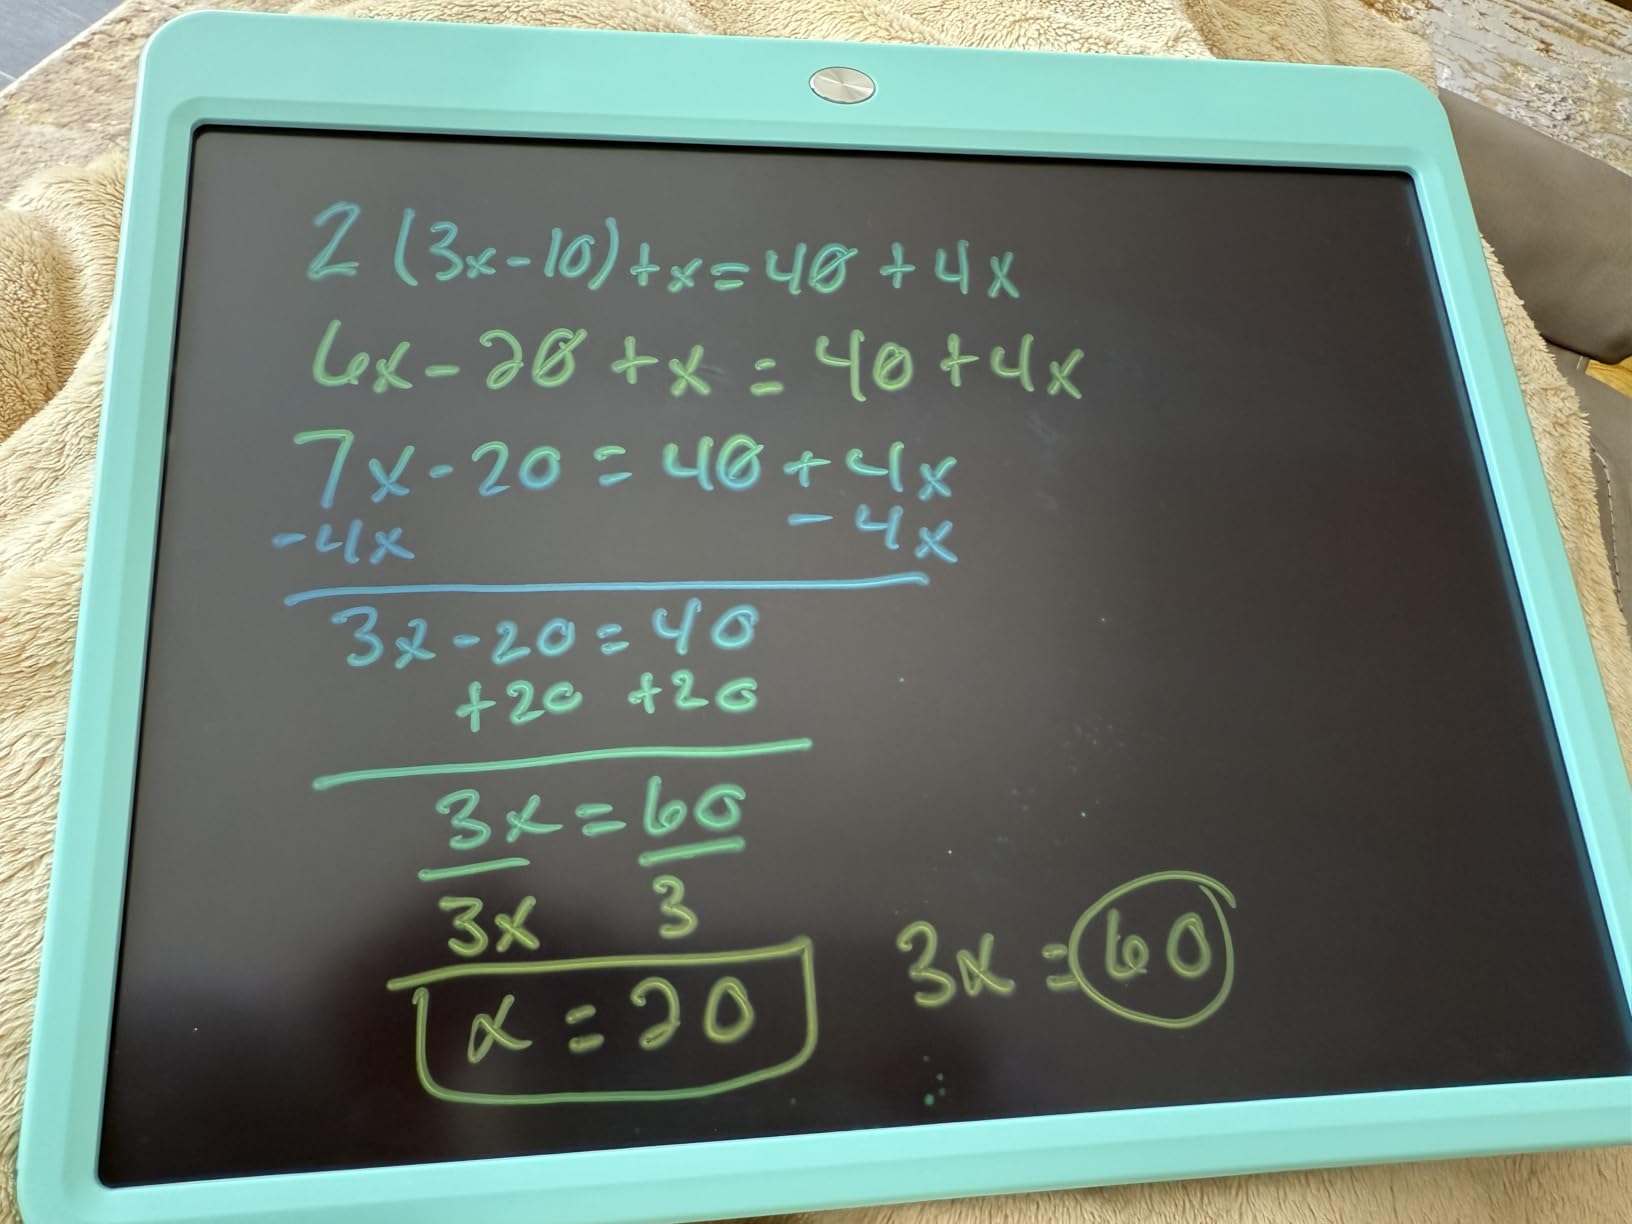 2(3x-10)+x=40+4x
6x-20+x=40+4x
7x-20=40+4x
-4x -4x
3x-20=40
+20 +20
3x=60
3x 3
x=20
3x=60